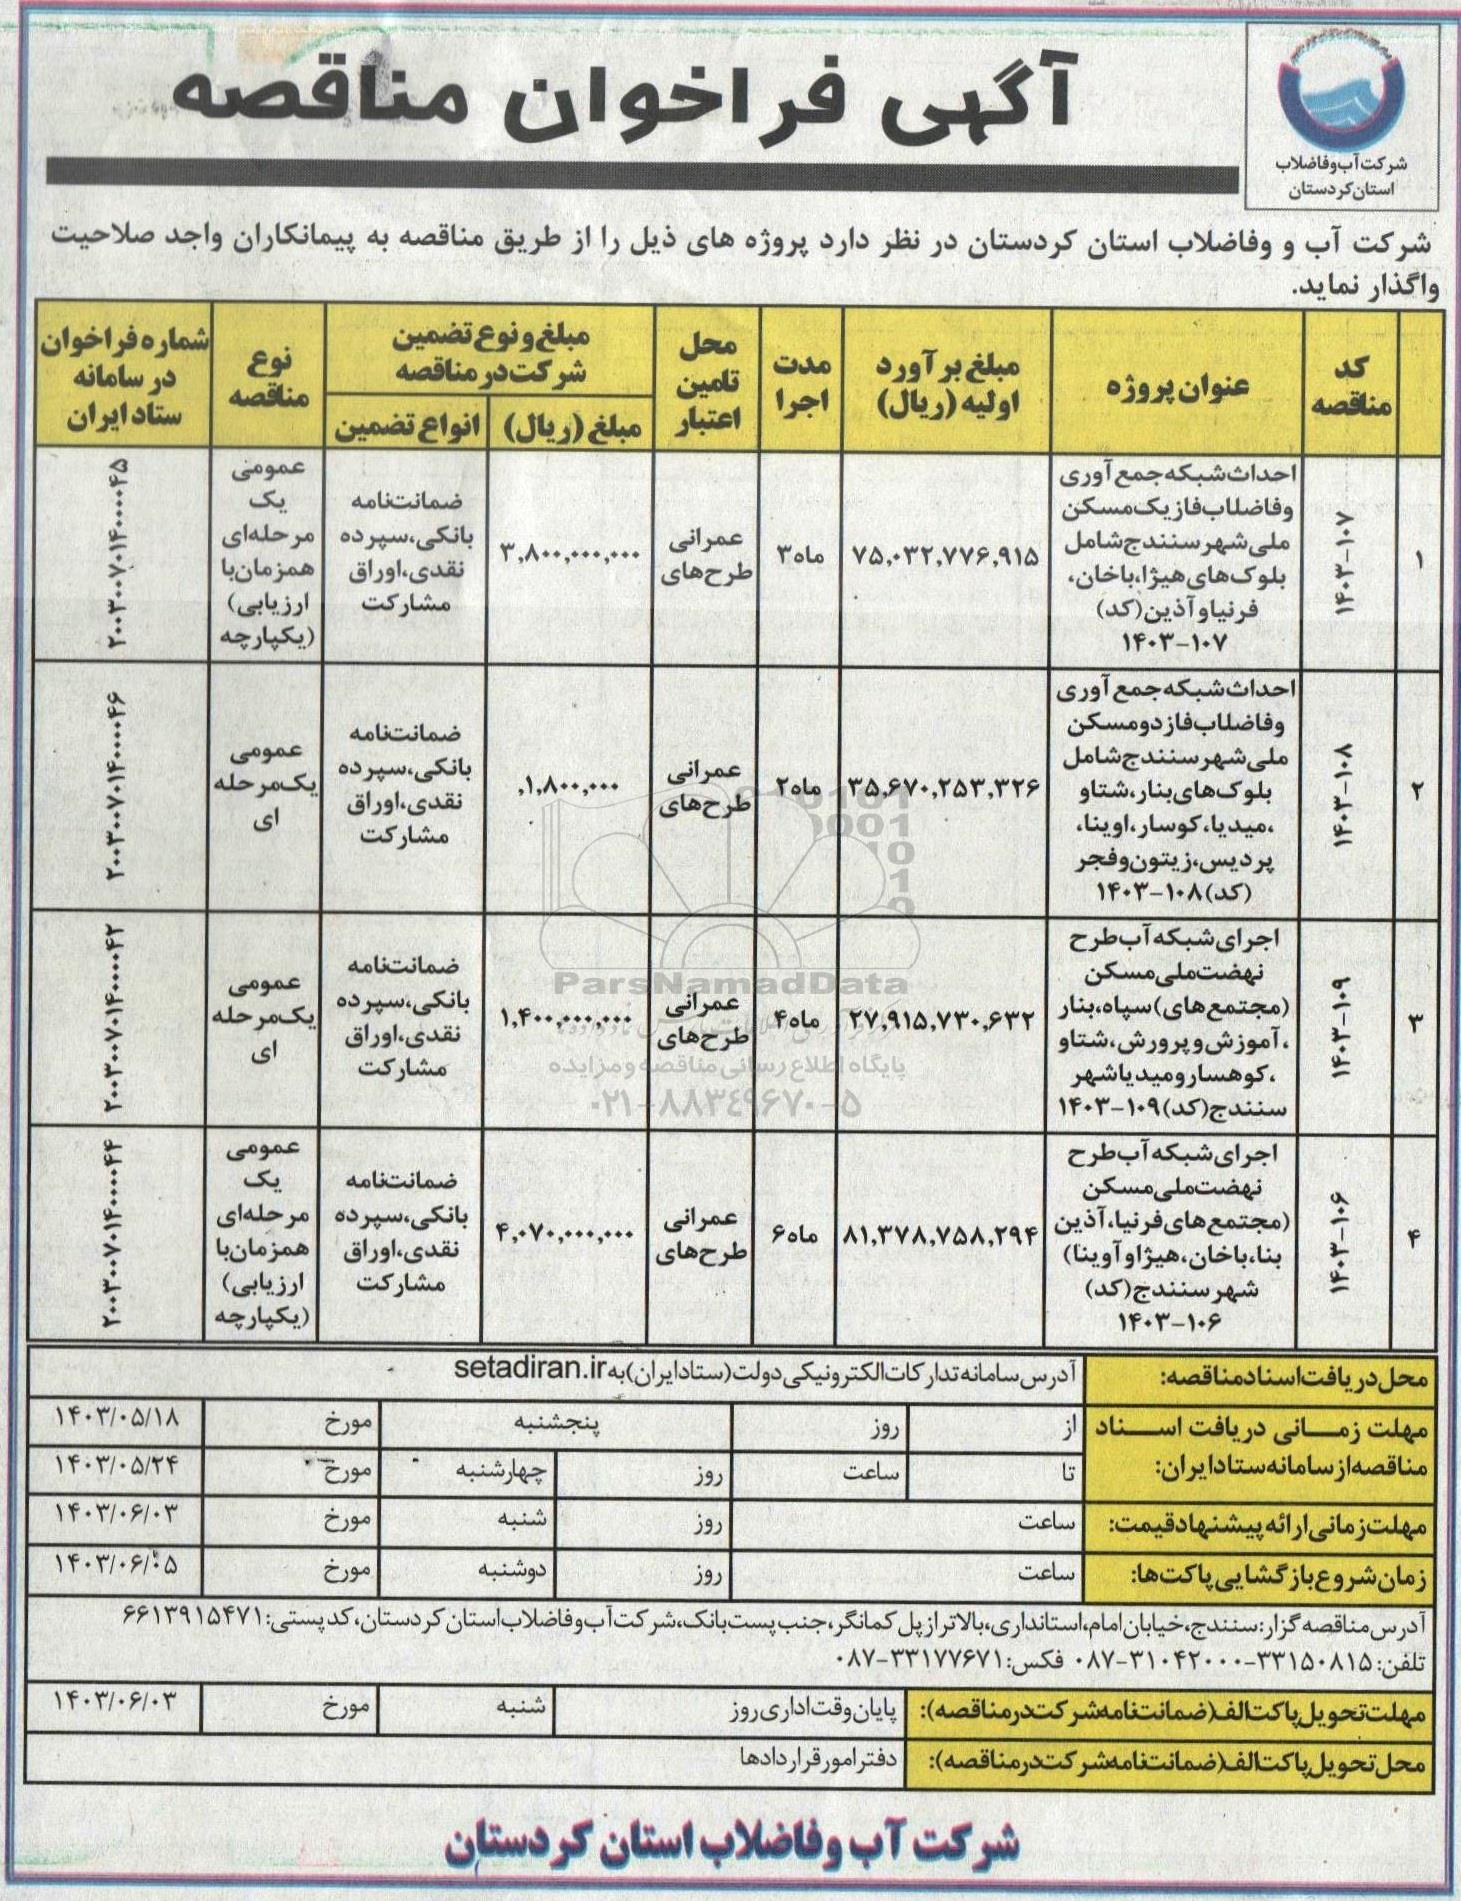 شرکت آب و فاضلاب
استان کردستان
آگهی فراخوان مناقصه
شرکت آب و وفاضلاب استان کردستان در نظر دارد پروژه های ذیل را از طریق مناقصه به پیمانکاران واجد صلاحیت
واگذار نماید.
کد
مناقصه
عنوان پروژه
مبلغ برآورد
اولیه (ریال)
مدت
اجرا
محل
تامین
اعتبار
مبلغ و نوع تضمین
شرکت در مناقصه
مبلغ (ریال)
انواع تضمین
نوع
مناقصه
شماره فراخوان
در سامانه
ستاد ایران
۱
۱۴۰۳-۱۰۷
احداث شبکه جمع آوری
وفاضلاب فاز یک مسکن
ملی شهر سنندج شامل
بلوک های هیژا،باخان،
فرنیا و آذین (کد)
۱۴۰۳-۱۰۷
۷۵,۰۳۲,۷۷۶,۹۱۵
۳ماه
عمرانی
طرح های
۳,۸۰۰,۰۰۰,۰۰۰
ضمانت نامه
بانکی،سپرده
نقدی،اوراق
مشارکت
عمومی
یک
مرحله ای
همزمان با
ارزیابی)
(یکپارچه
۲۰۰۳۰۰۷۰۱۴۰۰۰۰۴۵
۲
۱۴۰۳-۱۰۸
احداث شبکه جمع آوری
وفاضلاب فاز دو مسکن
ملی شهر سنندج شامل
بلوک های بنار،شتاو
،میدیا،کوسار،اوینا،
پردیس،زیتون و فجر
(کد) ۱۴۰۳-۱۰۸
۳۵,۶۷۰,۲۵۳,۳۲۶
۲ماه
عمرانی
طرح های
,۱,۸۰۰,۰۰۰
ضمانت نامه
بانکی،سپرده
نقدی،اوراق
مشارکت
عمومی
یک مرحله
ای
۲۰۰۳۰۰۷۰۱۴۰۰۰۰۴۶
۳
۱۴۰۳-۱۰۹
اجرای شبکه آب طرح
نهضت ملی مسکن
(مجتمع های) سپاه،بنار
،آموزش و پرورش،شتاو
،کوهسار و میدیا شهر
سنندج (کد) ۱۴۰۳-۱۰۹
۲۷,۹۱۵,۷۳۰,۶۳۲
۴ماه
عمرانی
طرح های
۱,۴۰۰,۰۰۰,۰۰۰
ضمانت نامه
بانکی،سپرده
نقدی،اوراق
مشارکت
عمومی
یک مرحله
ای
۲۰۰۳۰۰۷۰۱۴۰۰۰۰۴۲
۴
۱۴۰۳-۱۰۶
اجرای شبکه آب طرح
نهضت ملی مسکن
(مجتمع های فرنیا،آذین
بنا،باخان،هیژا و آوینا)
شهر سنندج (کد)
۱۴۰۳-۱۰۶
۸۱,۳۷۸,۷۵۸,۲۹۴
۶ماه
عمرانی
طرح های
۴,۰۷۰,۰۰۰,۰۰۰
ضمانت نامه
بانکی،سپرده
نقدی،اوراق
مشارکت
عمومی
یک
مرحله ای
همزمان با
ارزیابی)
(یکپارچه
۲۰۰۳۰۰۷۰۱۴۰۰۰۰۴۴
ParsNamadData
پایگاه اطلاع رسانی مناقصه و مزایده
۰۲۱-۸۸۳۴۹۶۷۰-۵
محل دریافت اسناد مناقصه: آدرس سامانه تدارکات الکترونیکی دولت (ستاد ایران) به setadiran.ir
مهلت زمانی دریافت اسناد
مناقصه از سامانه ستاد ایران:
از روز پنجشنبه مورخ ۱۴۰۳/۰۵/۱۸
تا ساعت روز چهارشنبه مورخ ۱۴۰۳/۰۵/۲۴
مهلت زمانی ارائه پیشنهاد قیمت: ساعت روز شنبه مورخ ۱۴۰۳/۰۶/۰۳
زمان شروع بازگشایی پاکت ها: ساعت روز دوشنبه مورخ ۱۴۰۳/۰۶/۰۵
آدرس مناقصه گزار: سنندج،خیابان امام،استانداری،بالاتر از پل کمانگر،جنب پست بانک،شرکت آب و فاضلاب استان کردستان،کد پستی:۶۶۱۳۹۱۵۴۷۱
تلفن: ۳۳۱۵۰۸۱۵-۰۸۷-۳۱۰۴۲۰۰۰ فکس: ۰۸۷-۳۳۱۷۷۶۷۱
مهلت تحویل پاکت الف (ضمانت نامه شرکت در مناقصه): پایان وقت اداری روز شنبه مورخ ۱۴۰۳/۰۶/۰۳
محل تحویل پاکت الف (ضمانت نامه شرکت در مناقصه): دفتر امور قراردادها
شرکت آب و فاضلاب استان کردستان